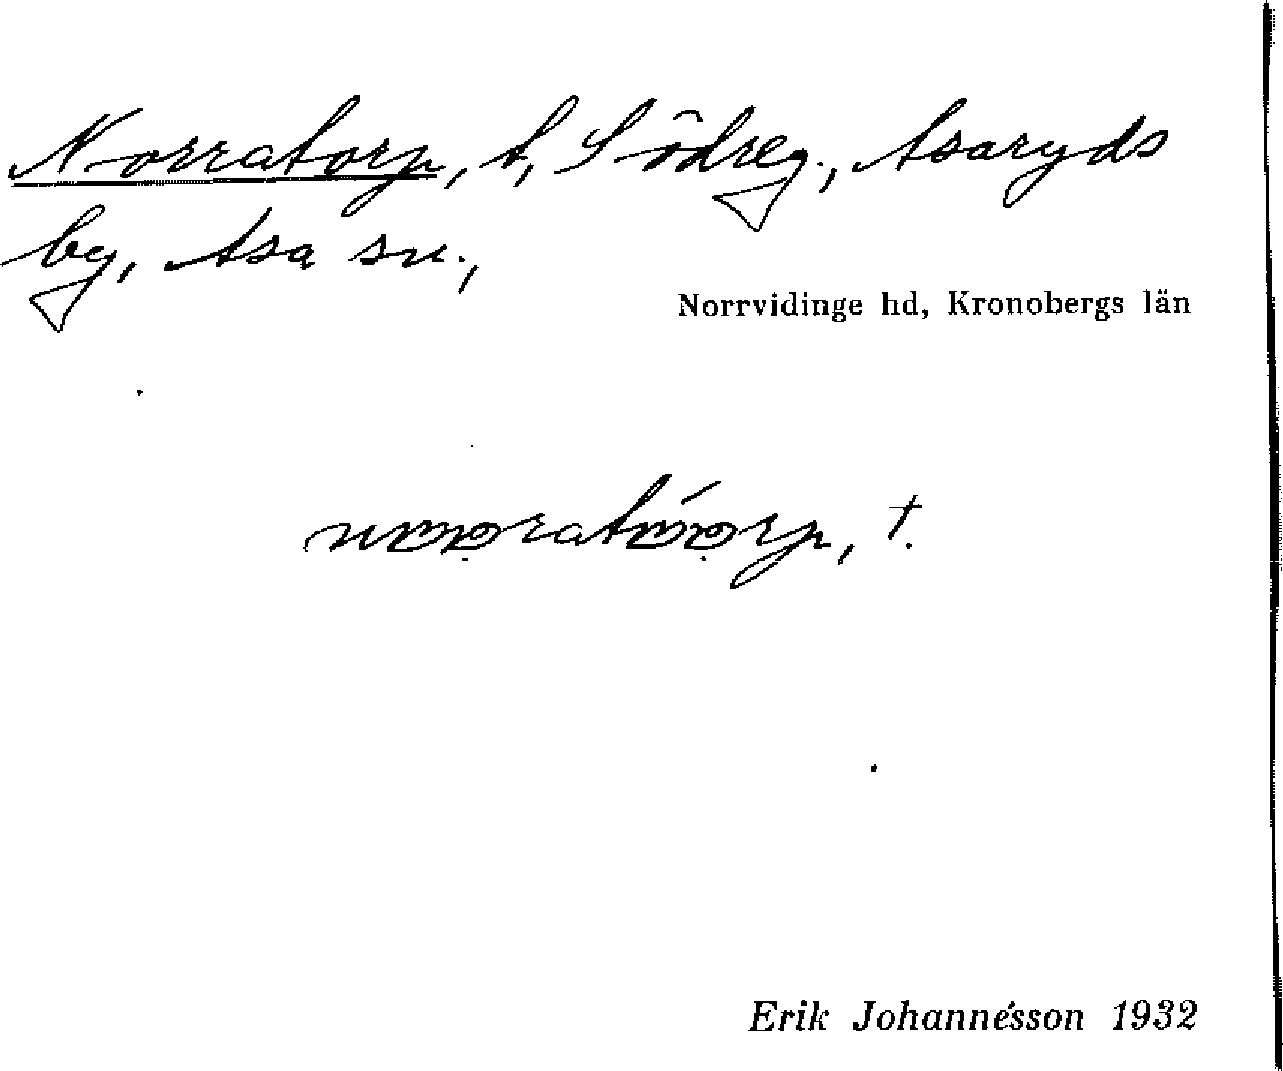 Norratorp, t, Södreg., Asaryds
by, Asa sn.,
Norrvidinge hd, Kronobergs län
†.
Erik Johannesson 1932